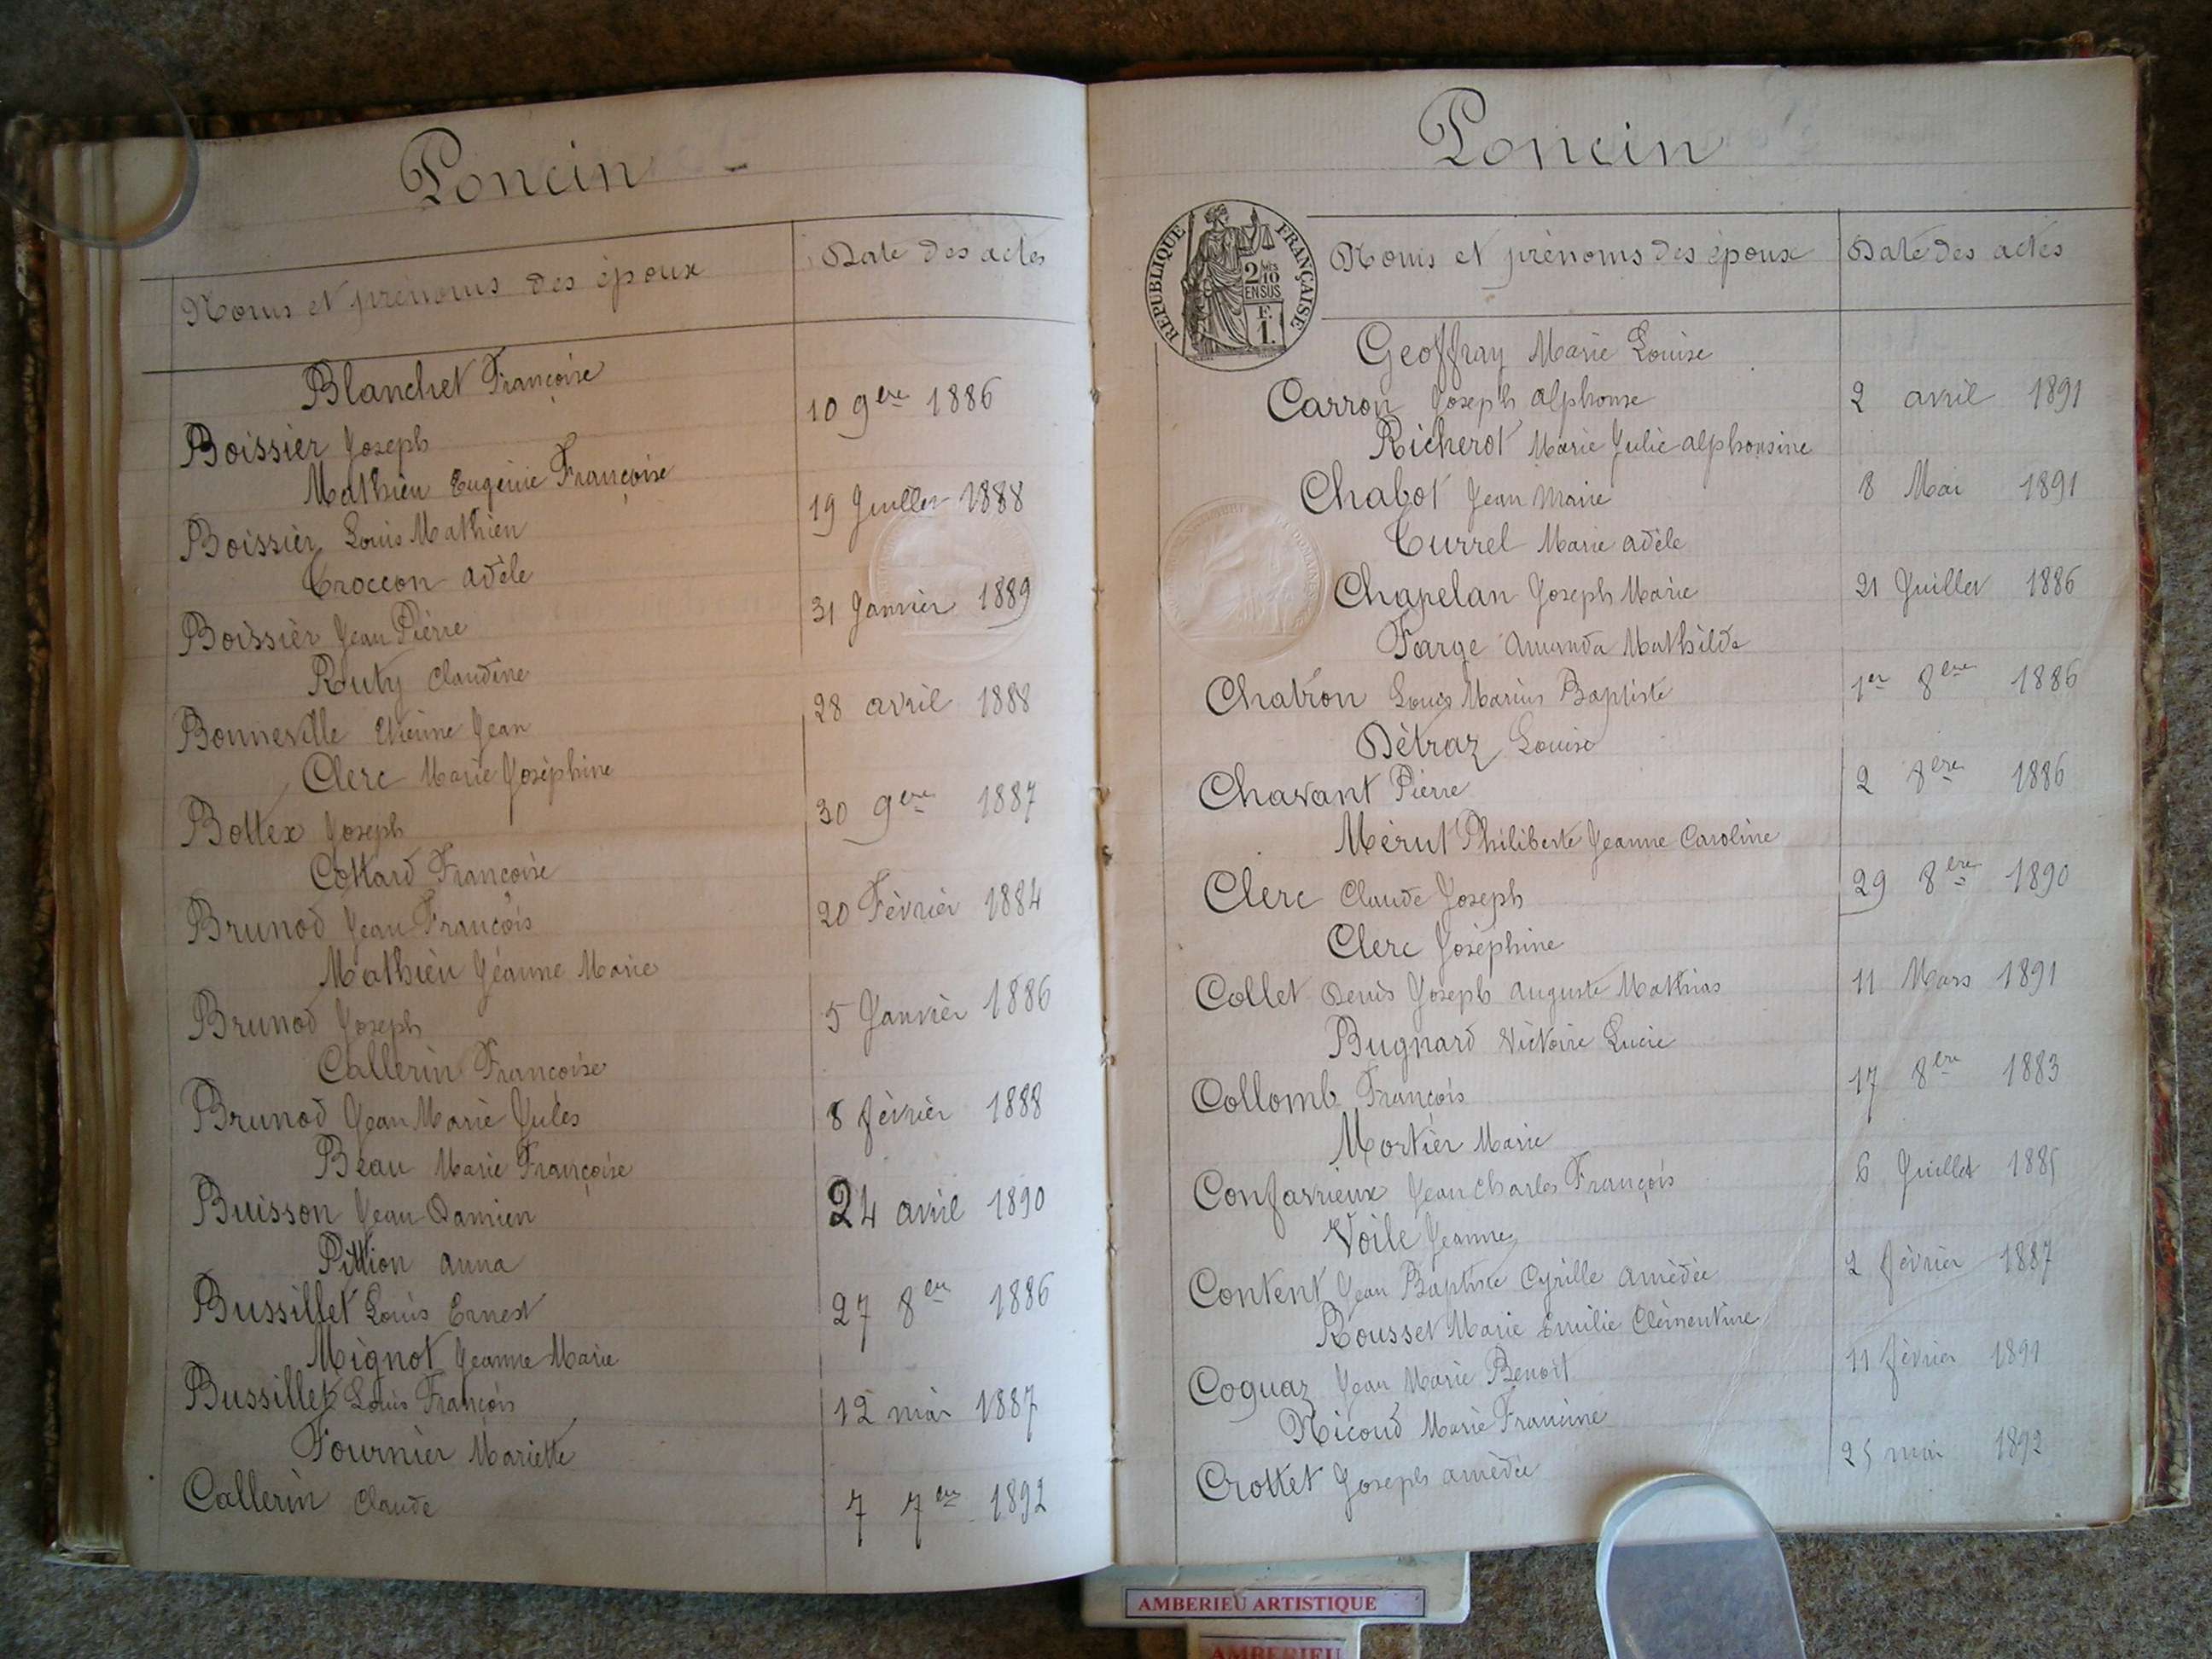 Poncin
Noms et prénoms des époux
Date des actes
Blanchet Françoise
Boissier Joseph
10 9ere 1886
Mathieu Eugénie Françoise
Boissier Louis Mathieu
19 Juillet 1888
Troccon adèle
Boissier Jean Pierre
31 Janvier 1889
Ruty Claudine
Bonneville Etienne Jean
28 avril 1888
Clerc Marie Joséphine
Bottex Joseph
30 9ere 1887
Cottard Françoise
Brunod Jean François
20 Février 1884
Mathieu Jeanne Marie
Brunod Joseph
5 Janvier 1886
Callerin Françoise
Brunod Jean Marie Jules
8 février 1888
Beau Marie Françoise
Buisson Jean Damien
24 avril 1890
Pittion anna
Bussillet Louis Ernest
27 8ere 1886
Mignot Jeanne Marie
Bussillet Louis François
12 mai 1887
Fournier Mariette
Callerin Claude
7 7ere 1892
Poncin
REPUBLIQUE FRANÇAISE
2 10
EN SUS
F.
1.
Noms et prénoms des époux
Date des actes
Geoffray Marie Louise
Carron Joseph alphonse
2 avril 1891
Richerot Marie Julie alphonsine
Chabot Jean Marie
8 Mai 1891
Turrel Marie adèle
Chapelan Joseph Marie
21 Juillet 1886
Farge Amanda Mathilde
Chatron Louis Marius Baptiste
1er 8ere 1886
Détraz Louise
Chavant Pierre
2 8ere 1886
Mérut Philiberte Jeanne Caroline
Clerc Claude Joseph
29 8ere 1890
Clerc Joséphine
Collet Denis Joseph Auguste Mathias
11 Mars 1891
Bugnard Victoire Lucie
Collomb François
17 8ere 1883
Mortier Marie
Confavrieux Jean Charles François
6 Juillet 1885
Voile Jeanne
Content Jean Baptiste Cyrille amédée
2 février 1887
Rousset Marie Emilie Clémentine
Coguaz Jean Marie Benoit
11 février 1891
Nicoud Marie Francine
Crottet Joseph amédée
25 mai 1892
AMBERIEU ARTISTIQUE
AMBERIEU